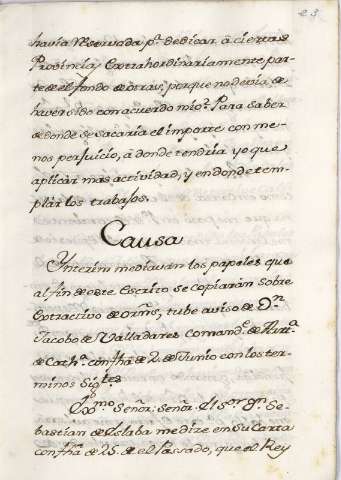 23
havia reservada p.ª dedicar, à ciertas
Provincias Extrahordinariamente par-
te de el fondo de otras, porque no devia de
haver sido con acuerdo mio? Para saber
de donde se sacaria el importe con me-
nos perjuicio, à donde tendria yo que
aplicar mas actividad, y en donde tem-
plar los trabajos.
Causa
Ynterim mediavan los papeles que
al fin de este Escrito se copiarán sobre
Extractivo de orñs, tube aviso de Dn
Jacobo de Valladares Comand.e de
de Carth.ª con fha de 2. de Junio con los ter-
minos Sig.tes
Ex.mo Señor: Señor: El S.or Dn. Se-
bastian de Eslaba me dize en su Carta
con fha de 25. de el Passado, que el Rey